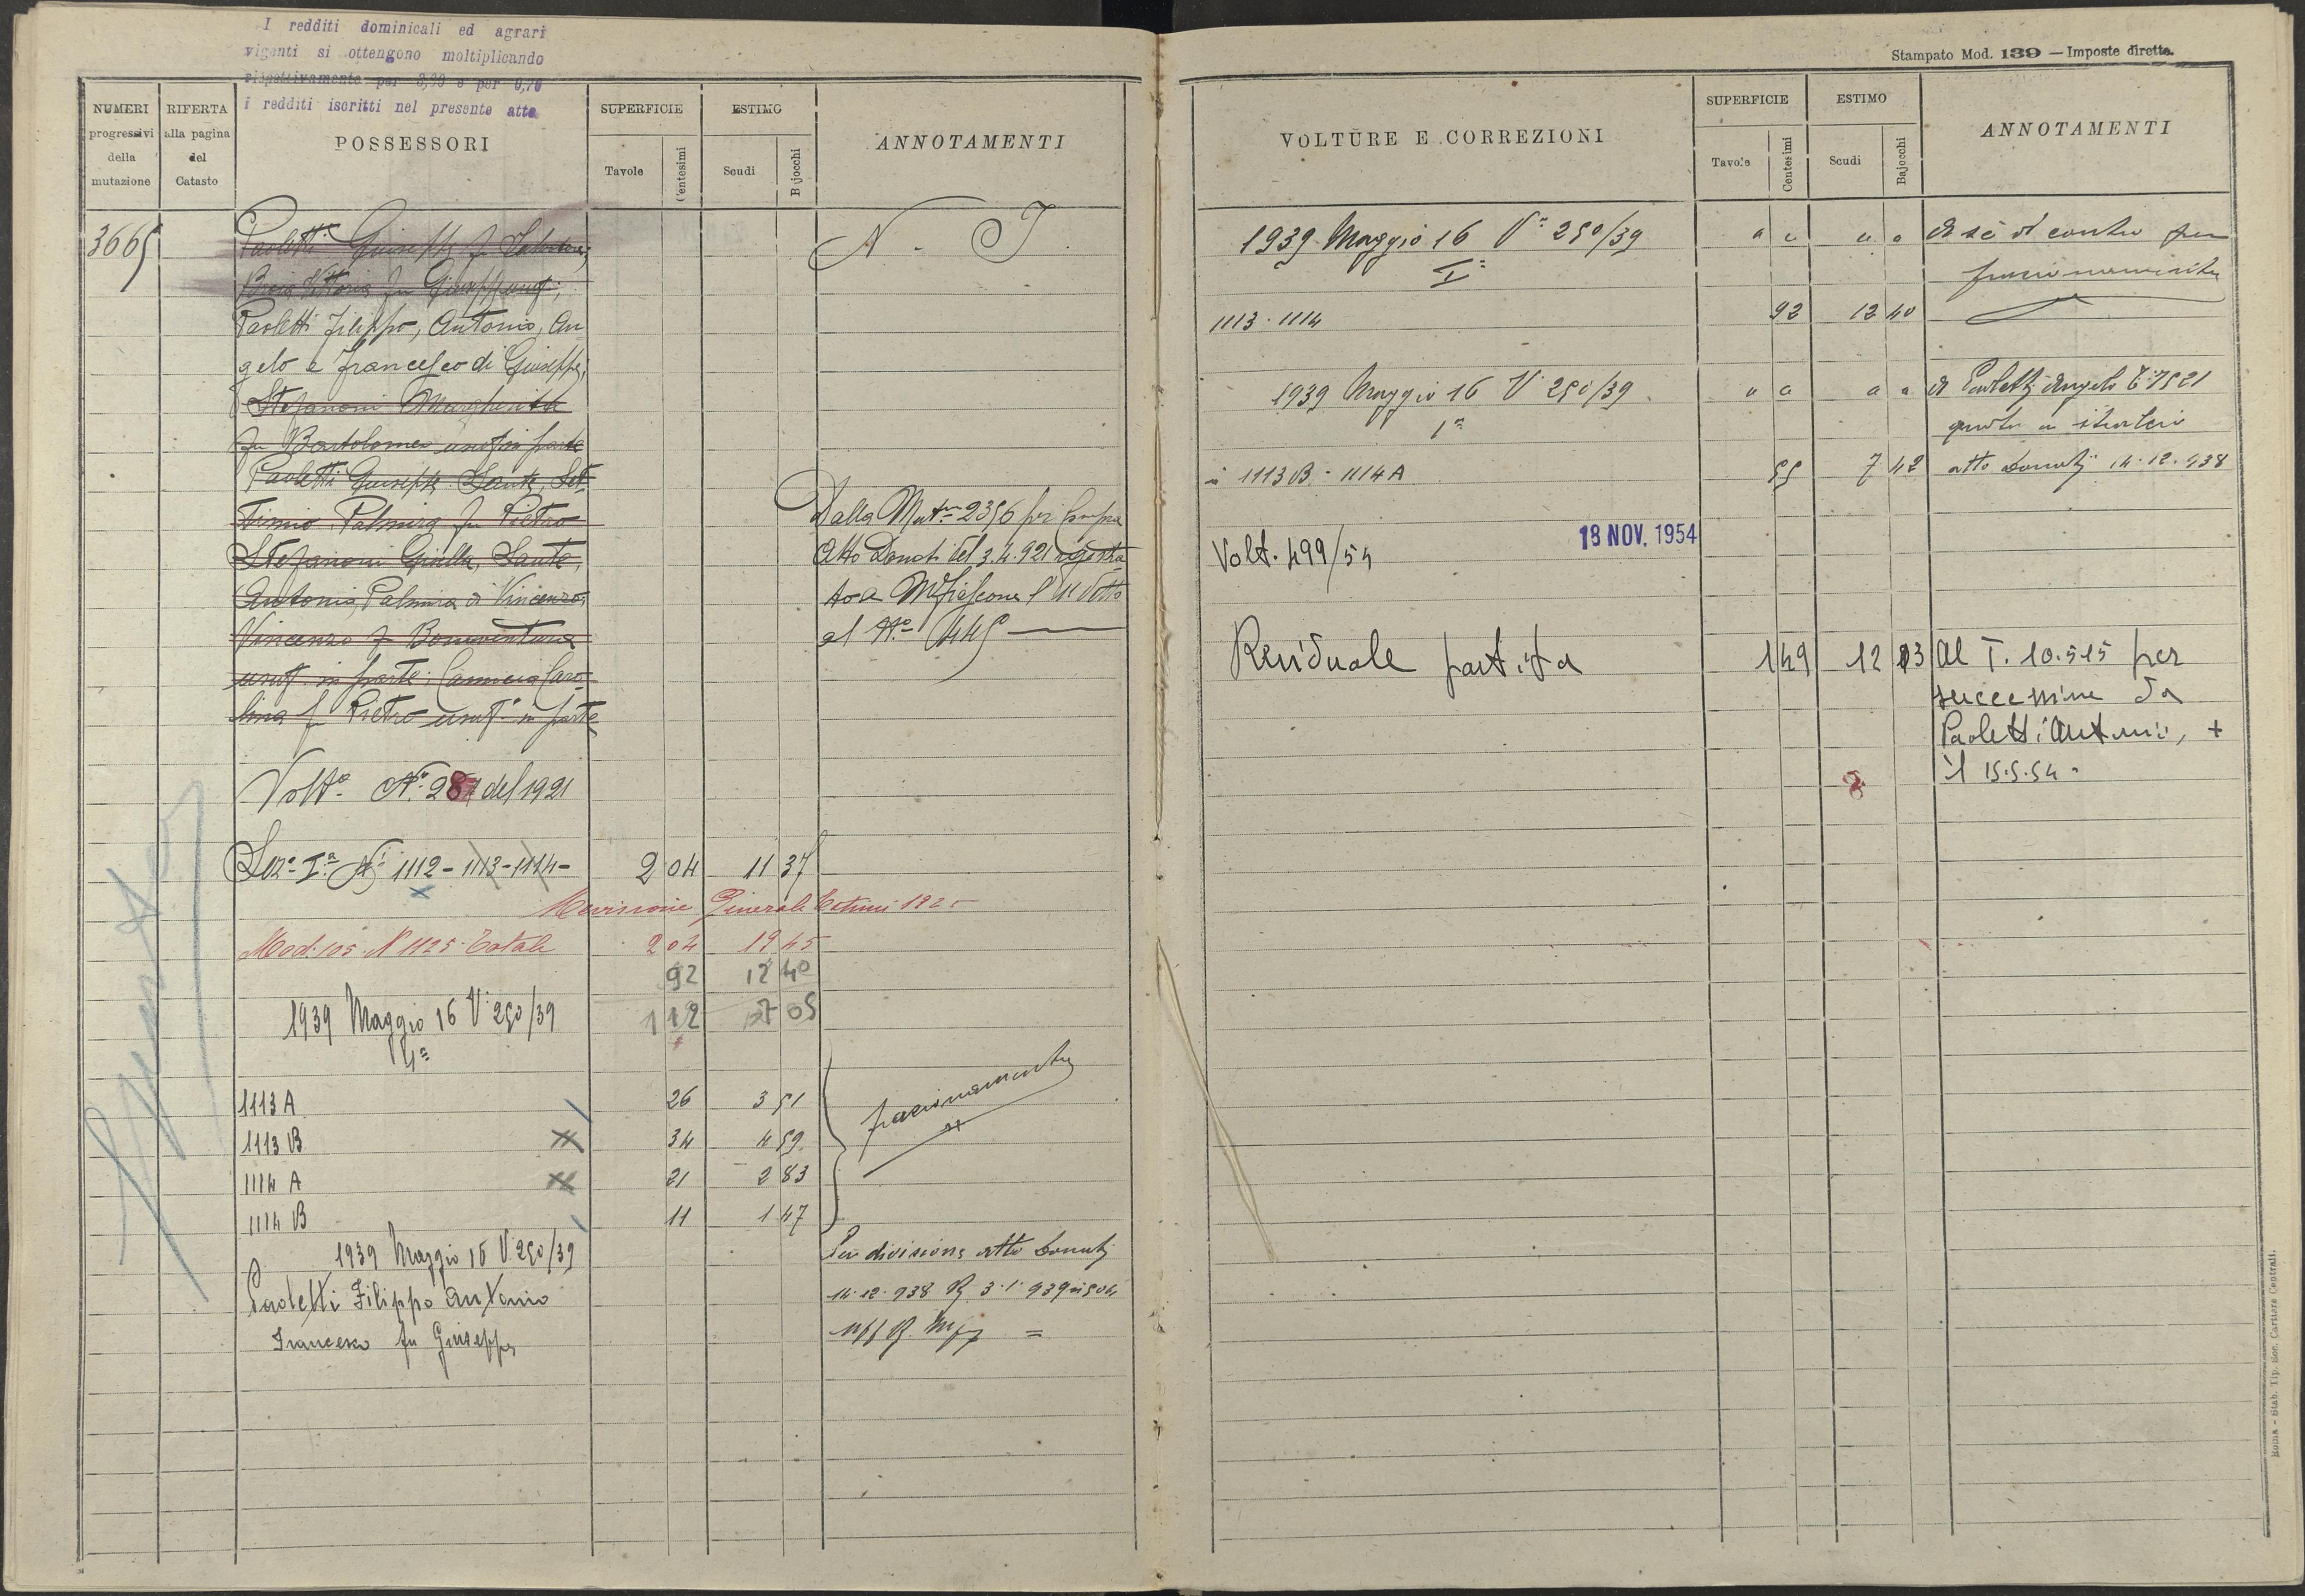 I redditi dominicali ed agrari
vigenti si ottengono moltiplicando
rispettivamente per e per 0,70
i redditi iscritti nel presente atto
NUMERI progressivi della mutazione
RIFERTA alla pagina del Catasto
POSSESSORI
SUPERFICIE
Tavole
Centesimi
ESTIMO
Scudi
Bajocchi
ANNOTAMENTI
3665
Paoletti Giuseppe f Salvatore,
Vittoria fu Giuseppe usuf.,
Paoletti Filippo, Antonio, An
gelo e Francesco di Giuseppe,
Stefanoni Margherita
fu Bartolomeo usuf in parte
Paoletti Giuseppe Sante, Set
timio Palmira fu Pietro
Stefanoni Giulla, Sante,
Antonio, Palmira di Vincenzo,
Vincenzo f Bonaventura
usuf. in parte; Caro
lina f Pietro usuf.º in parte
N. T.
Dalla Mut.ne 2356 per
Atto Donati del 3.4.921 registra
to a Mfiascone l' 11 detto
al Nº 445
Volt.ª Nº 281 del 1921
Sez.e I.ª Ni 1112-1113-1114- 2 04 11 37
Revisione Generale Estimi 1925
Mod. 105 N 1125 Totale 2 04 19 45
92 12 40
1939 Maggio 16 V. 250/39 1 12 7 05
1113 A 26 3 51
1113 B 34 4 59
1114 A 21 2 83
1114 B 11 1 47
frazionamento
1939 Maggio 16 V 250/39
Paoletti Filippo Antonio
Francesco fu Giuseppe
Per divisione atto Donati
14.12.938 R 3.1.939 n 504
Stampato Mod. 139 — Imposte dirette.
VOLTURE E CORREZIONI
SUPERFICIE
Tavole
Centesimi
ESTIMO
Scudi
Bajocchi
ANNOTAMENTI
1939 Maggio 16 V.º 250/39 " " " " A sé di contro per
I.ª frazionamento
1113-1114 92 12 40
1939 Maggio 16 V 250/39 " " " " A Paoletti Angelo T. 7521
1ª quota a stralcio
1113 B - 1114 A 55 7 42 atto Donati 14.12.938
Volt. 499/54 18 NOV. 1954
Residuale partita 1 49 12 03 Al T. 10.515 per
successione da
Paoletti Antonio, +
il 15.5.54.
Roma - Stab. Tip. Soc. Cartiere Centrali.